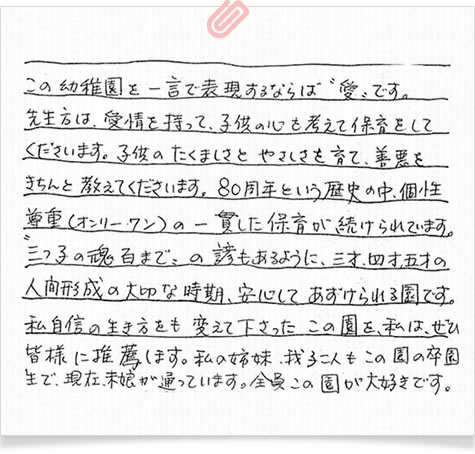 この幼稚園を一言で表現するならば〝愛〟です。
先生方は、愛情を持って、子供の心も考えて保育をして
くださいます。子供のたくましさとやさしさを育て、善悪を
きちんと教えてくださいます。80周年という歴史の中、個性
尊重(オンリーワン)の一貫した保育が続けられています。
〝三つ子の魂百まで〟の諺もあるように、三才、四才、五才の
人間形成の大切な時期、安心してあずけられる園です。
私自信の生き方をも変えて下さったこの園を、私は、ぜひ
皆様に推薦します。私の姉妹、我子二人もこの園の卒園
生で、現在、末娘が通っています。全員この園が大好きです。